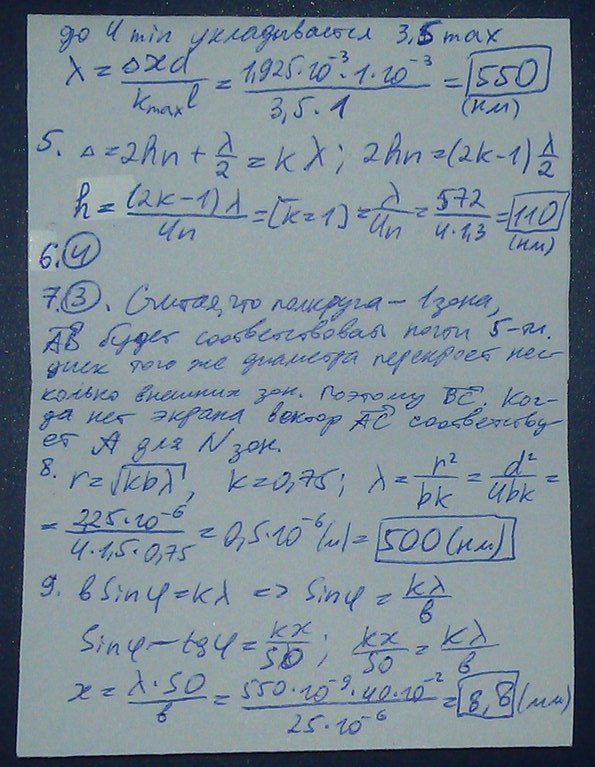 до 4 min укладывается 3,5 max
λ = Δxd / kmax l = 1,925·10⁻³·1·10⁻³ / 3,5·1 = 550 (нм)
5. Δ = 2hn + λ/2 = kλ; 2hn = (2k-1) λ/2
h = (2k-1)λ / 4n = [k=1] = λ/4n = 572 / 4·1,3 = 110 (нм)
6. 4
7. 3. Считая, что полкруга – 1 зона,
AB будет соответствовать почти 5-ти.
диск того же диаметра перекроет нес-
колько внешних зон. Поэтому BC. Ког-
да нет экрана вектор AC соответству-
ет A для N зон.
8. r = √kbλ, k = 0,75; λ = r²/bk = d²/4bk =
= 2,25·10⁻⁶ / 4·1,5·0,75 = 0,5·10⁻⁶ (м) = 500 (нм)
9. b sinφ = kλ => sinφ = kλ/b
sinφ ~ tgφ = kx/50; kx/50 = kλ/b
x = λ·50 / b = 550·10⁻⁹·40·10⁻² / 25·10⁻⁶ = 8,8 (мм)